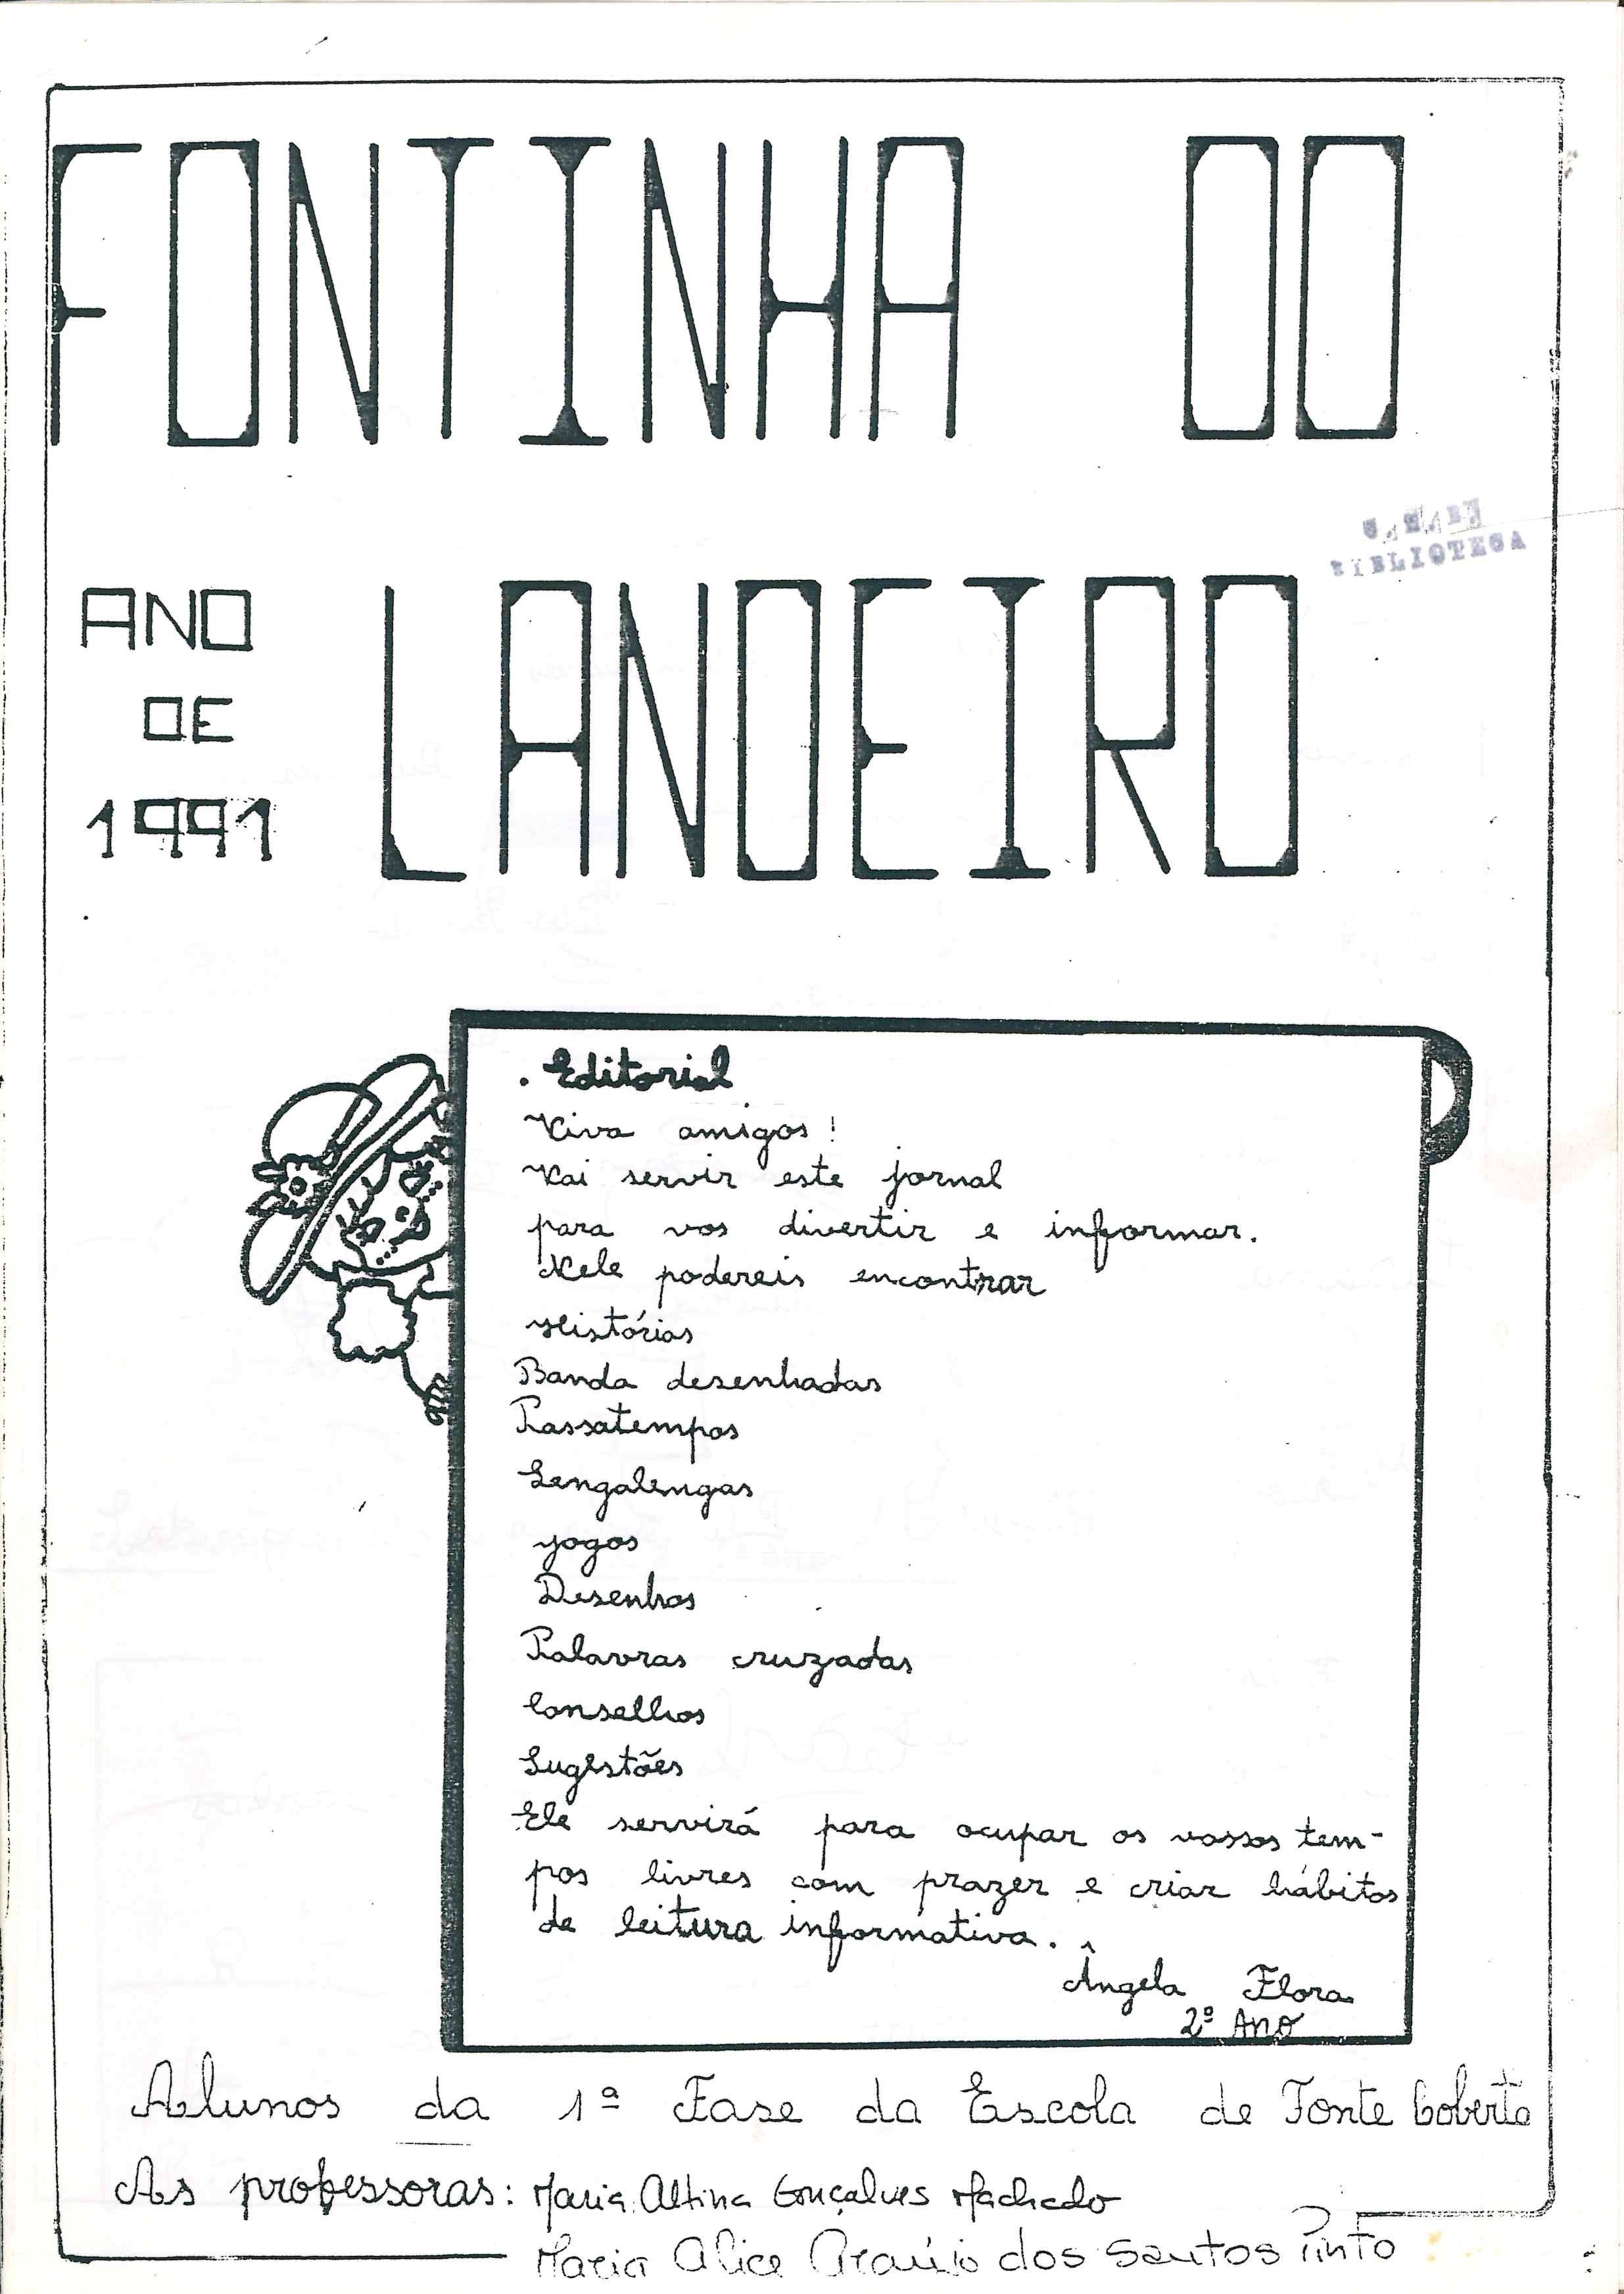 FONTINHA DO
BIBLIOTECA
ANO
DE
1991
LANDEIRO
. Editorial
Viva amigos!
Vai servir este jornal
para vos divertir e informar.
Nele podereis encontrar
Histórias
Banda desenhadas
Passatempos
Lengalengas
jogos
Desenhos
Palavras cruzadas
Conselhos
Sugestões
Ele servirá para ocupar os vossos tem-
pos livres com prazer e criar hábitos
de leitura informativa.
Ângela Flora
2º Ano
Alunos da 1ª Fase da Escola de Fonte Coberta
As professoras: Maria Altina Gonçalves Machado
Maria Alice Araújo dos Santos Pinto